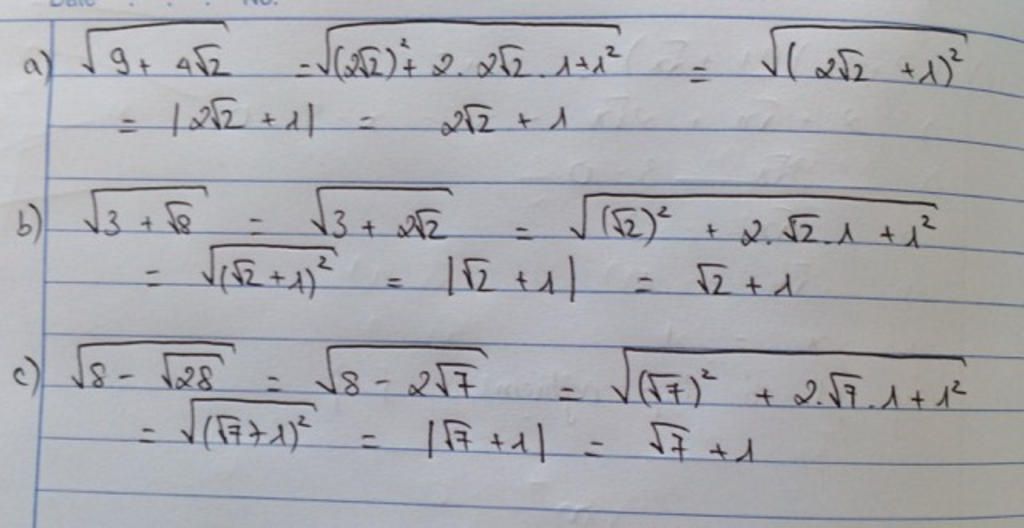 Date . . . No.
a) √(9 + 4√2) = √((2√2)² + 2.2√2.1+1²) = √((2√2 +1)²)
= |2√2 + 1| = 2√2 + 1
b) √(3 + √8) = √(3 + 2√2) = √((√2)² + 2.√2.1 +1²)
= √((√2 +1)²) = |√2 +1| = √2 + 1
c) √(8 - √28) = √(8 - 2√7) = √((√7)² + 2.√7.1+1²)
= √((√7+1)²) = |√7 +1| = √7 +1